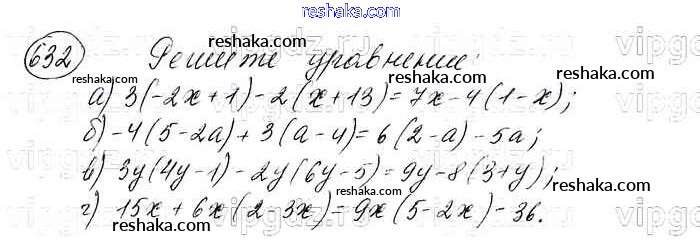 reshaka.com
632 Решите уравнение:
reshaka.com reshaka.com
а) 3(-2x+1)-2(x+13)=7x-4(1-x);
reshaka.com reshaka.com
б) -4(5-2a)+3(a-4)=6(2-a)-5a;
reshaka.com reshaka.com
в) 3y(4y-1)-2y(6y-5)=9y-8(3+y);
reshaka.com reshaka.com
г) 15x+6x(2-3x)=9x(5-2x)-36.
reshaka.com